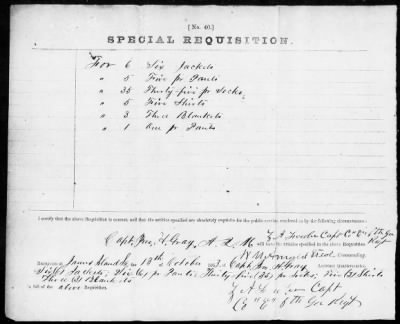 [No. 40.]
SPECIAL REQUISITION.
For 6 Six Jackets
" 5 Five pr Pants
" 35 Thirty five pr Socks
" 5 Five Shirts
" 3 Three Blankets
" 1 One pr Pants
I certify that the above Requisition is correct; and that the articles specified are absolutely requisite for the public service, rendered so by the following circumstances:
Capt Co "E" 6th Geo Regt
Capt. Jno. H. Gray, A. Q. M. will issue the articles specified in the above Requisition.
Commanding.
Received at James Island 13th October 1863 of Capt Jno. H. Gray Assistant Quartermaster,
Six (6) Jackets; Six (6) pr Pants; Thirty five (35) pr Socks; Five (5) Shirts
Three (3) Blankets
in full of the above Requisition.
Capt
Co "E" 6th Geo Regt